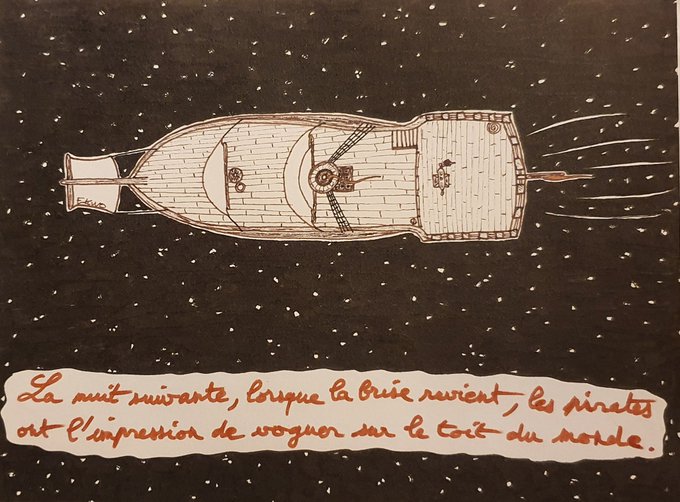 La nuit suivante, lorsque la brise revient, les pirates
ont l'impression de voguer sur le toit du monde.